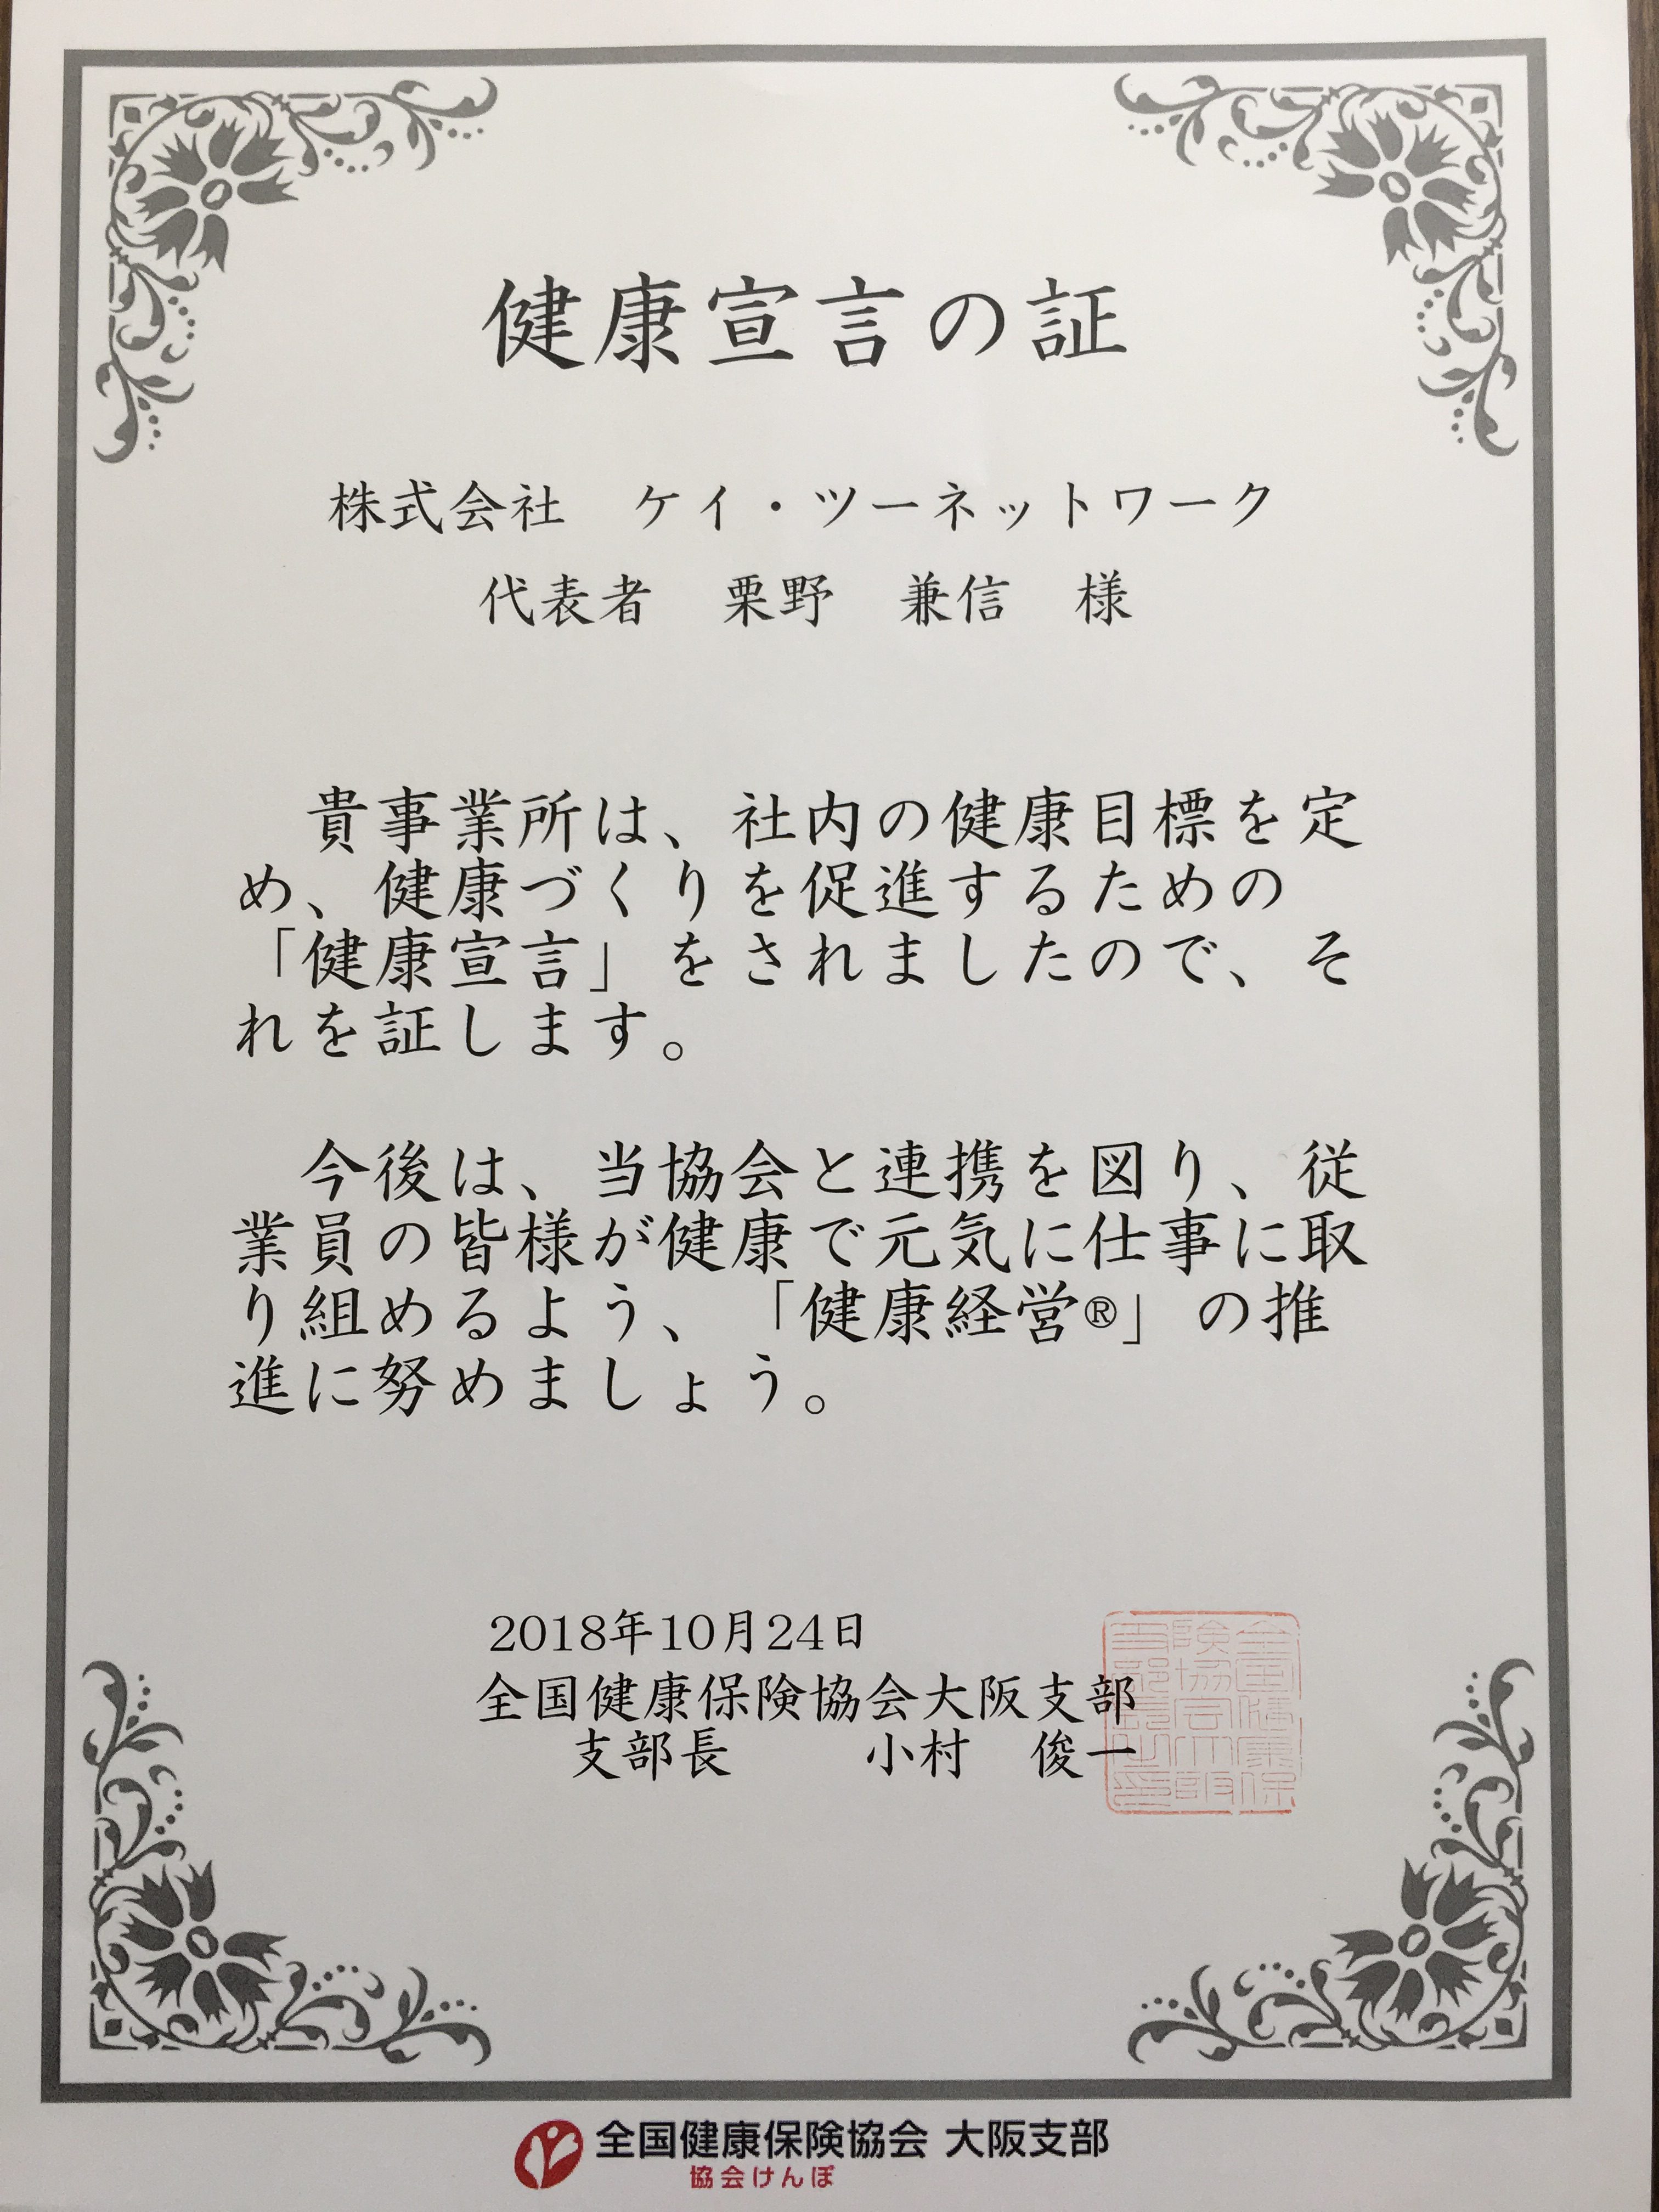 健康宣言の証
株式会社　ケイ・ツーネットワーク
代表者　栗野　兼信　様
貴事業所は、社内の健康目標を定
め、健康づくりを促進するための
「健康宣言」をされましたので、そ
れを証します。
今後は、当協会と連携を図り、従
業員の皆様が健康で元気に仕事に取
り組めるよう、「健康経営®」の推
進に努めましょう。
2018年10月24日
全国健康保険協会大阪支部
支部長　　小村　俊一
全国健康保
険協会大阪
支部長之印
全国健康保険協会 大阪支部
協会けんぽ